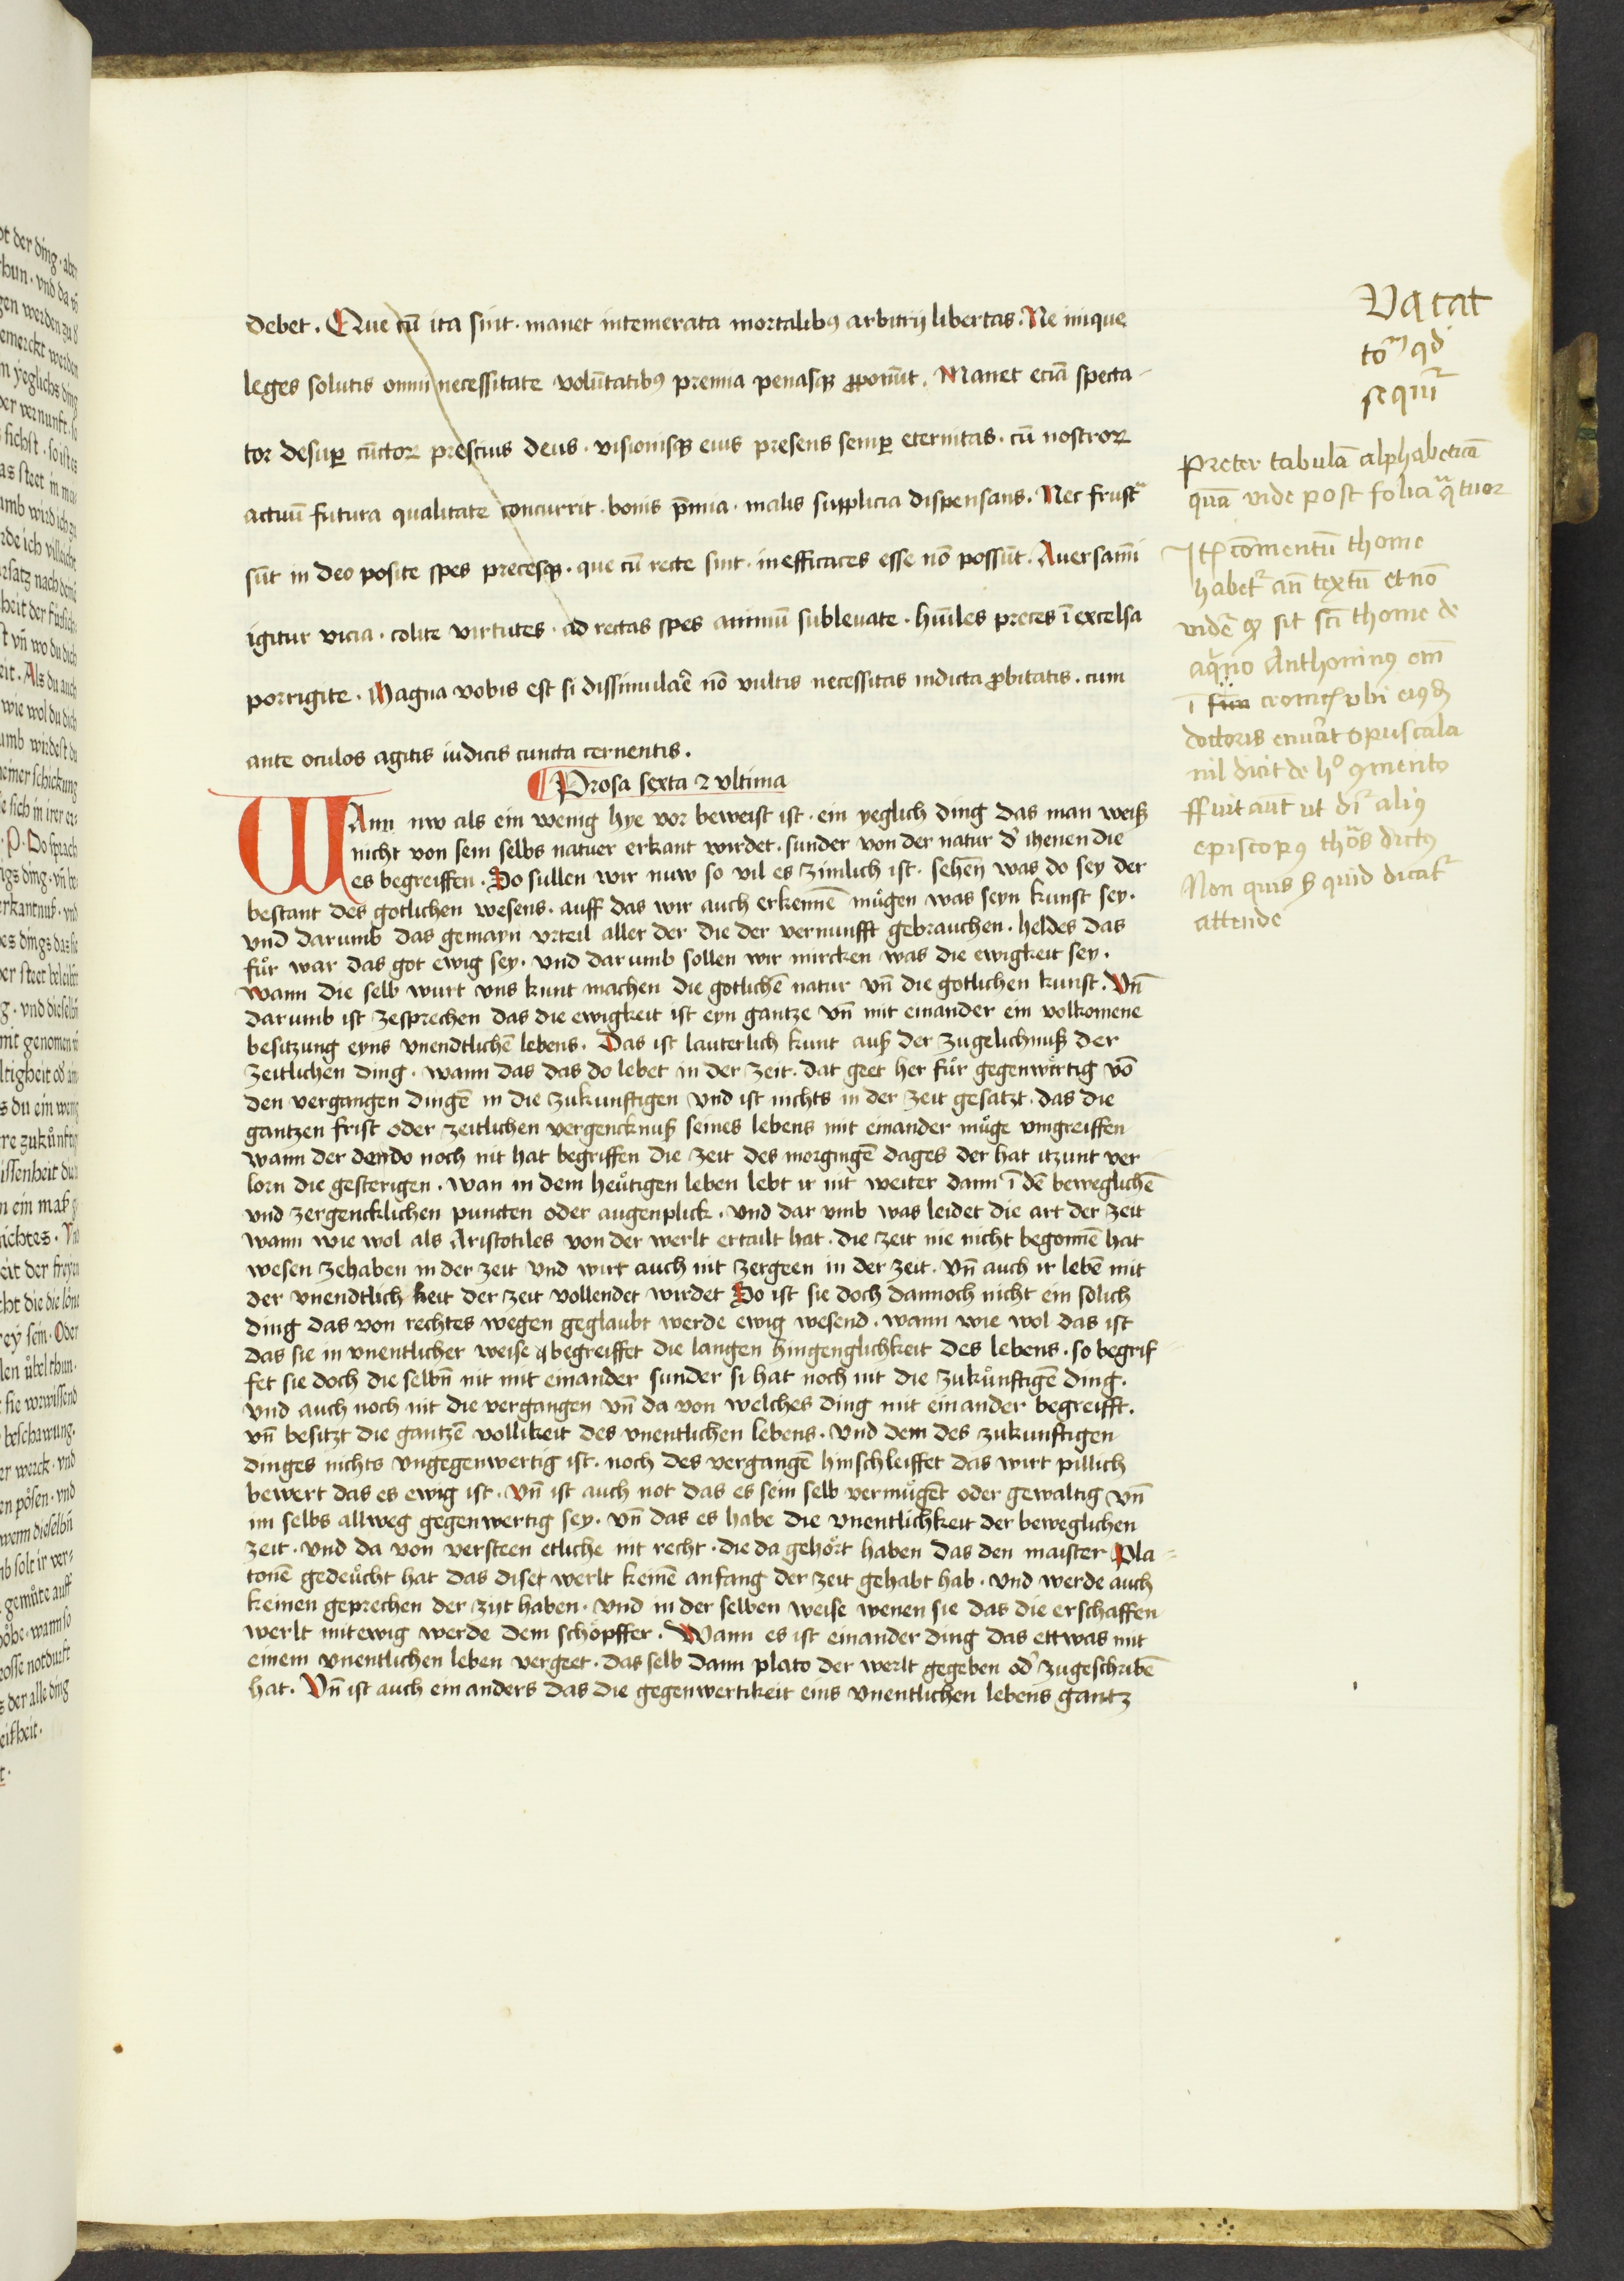 debet . Que cū ita sint · manet intemerata mortalibꝰ arbitrij libertas . Ne inique
leges solutis omni necessitate volūntatibꝰ premia penasqꝫ ꝓponūt . Manet eciā specta-
tor desuꝑ cūctoꝝ prescius deus · visionisqꝫ eius presens semꝑ eternitas · cū nostroꝝ
actuū futura qualitate concurrit · bonis p̄mia · malis supplicia dispensans . Nec frustᵃ
sūt in deo posite spes precesqꝫ · que cū recte sint · inefficaces esse nō possūt . Aversamī
igitur vicia · colite virtutes · ad rectas spes animū sublevate · hūiles preces ī excelsa
porrigite . Magna vobis est si dissimulār̄e nō vultis necessitas indicta ꝓbitatis . cum
ante oculos agitis iudicis cuncta cernentis .
¶ Prosa sexta ⁊ vltima
WAnn nw als ein wenig hye vor beweist ist · ein yeglich ding das man weiß
nicht von sein selbs natuer erkant wirdet . sunder von der natur d' ihenen die
es begreiffen . So sullen wir nuw so vil es zimlich ist · sehen was do sey der
bestant des gotlichen wesens . auff das wir auch erkennē mügen was seyn kunst sey .
vnd darumb das gemayn vrteil aller der die der vernunfft gebrauchen . heldes das
für war das got ewig sey . vnd darumb sollen wir mircken was die ewigkeit sey .
wann die selb wurt vns kunt machen die gotlichē natur vn̄ die gotlichen kunst . Vn̄
darumb ist zesprechen das die ewigkeit ist eyn gantze vn̄ mit einander ein volkomene
besitzung eyns vnendtlichē lebens . Das ist lauterlich kunt auß der zugelichnuß der
zeitlichen ding . wann das das do lebet in der zeit . dat geet her für gegenwärtig vō
den vergangen dingē in die zukunftigen vnd ist nichts in der zeit gesatzt . das die
gantzen frist oder zeitlichen vergencknuß seines lebens mit einander müge vmgreiffen
wann der dendo noch nit hat begriffen die zeit des morgingē dages der hat itzunt ver
lorn die gesterigen . wan in dem heütigen leben lebt ir nit weiter dann ī dē beweglichē
vnd zergencklichen puncten oder augenplick . vnd dar vmb was leidet die art der zeit
wann wie wol als Aristotiles von der werlt ertailt hat . die zeit nie nicht begonnē hat
wesen zehaben in der zeit vnd wirt auch nit zergeen in der zeit . vn̄ auch ir lebē mit
der vnendtlich keit der zeit vollendet wirdet So ist sie doch dannoch nicht ein solich
ding das von rechtes wegen geglaubt werde ewig wesend . wann wie wol das ist
das sie in vnentlicher weise begreiffet die langen hingenglichkeit des lebens . so begrif
fet sie doch die selbn̄ nit mit einander sunder si hat noch nit die zukünftigē ding .
vnd auch noch nit die vergangen vn̄ da von welches ding mit einander begreifft .
vn̄ besitzt die gantzē vollikeit des vnentlichen lebens . vnd dem des zukunftigen
dinges nichts vngegenwertig ist . noch des vergangē hinschleiffet das wirt pillich
bewert das es ewig ist . vn̄ ist auch not das es sein selb vermügēt oder gewaltig vn̄
im selbs allweg gegenwertig sey . vn̄ das es habe die vnentlichkeit der beweglichen
zeit . vnd da von versteen etliche nit recht . die da gehört haben das den maister Pla-
tonē gedeücht hat das diset werlt keinē anfang der zeit gehabt hab . vnd werde auch
keinen geprechen der zijt haben . vnd in der selben weise wenen sie das die erschaffen
werlt mitewig werde dem schöpffer . Wann es ist einander ding das ettwas mit
einem vnentlichen leben vergeet . das selb dann plato der werlt gegeben od' zugeschribē
hat . Vn̄ ist auch ein anders das die gegenwertikeit eins vnentlichen lebens gantz
Vacat
qd
sequitᷣ
Preter tabulā alphabeticā
quā vide post folia quatuoꝝ
Itē cōmentū thome
habetᷣ an̄ textū et nō
vidēt ꝙ sit scī thome de
aqⁱno Anthoninꝰ em̄
ī cronicis vbi eiꝰdē
doctoris enūat opuscula
nil dicit de hᵒ ꝯmento
ffuit aūt ut dr̄ aliꝰ
episcopꝰ thōs dictꝰ
Non quis sꝫ quid dicatᷣ
attende